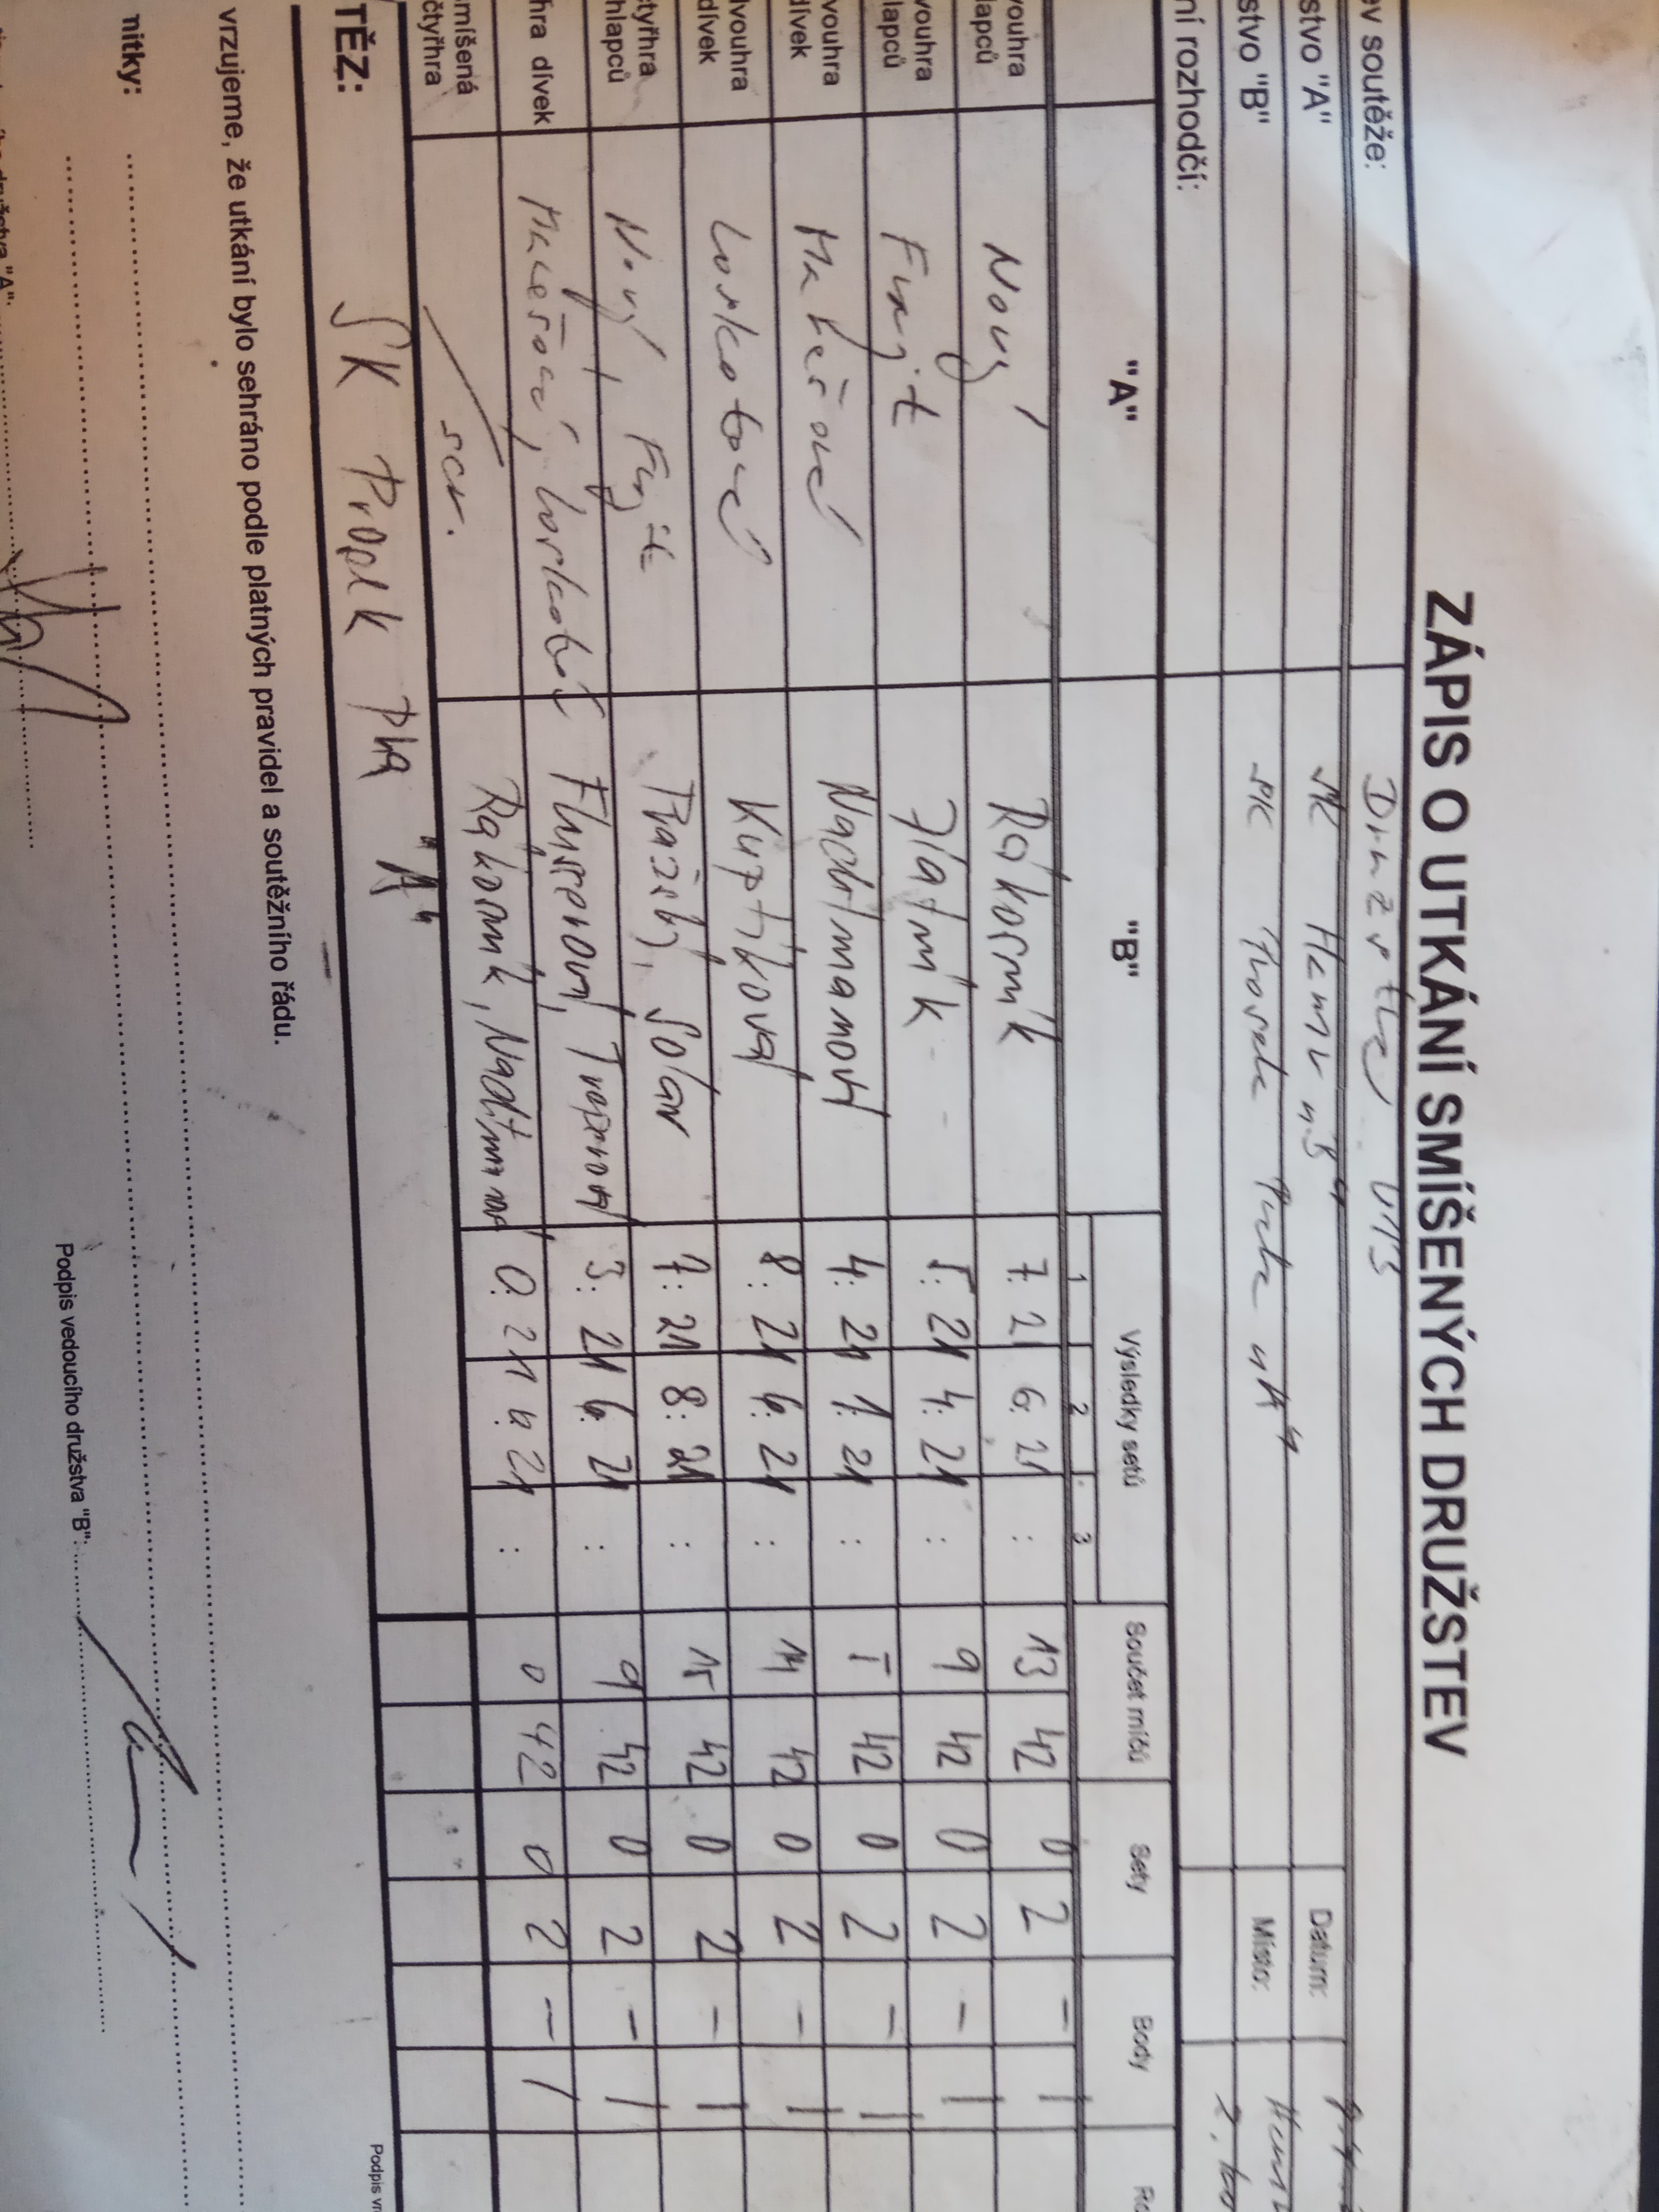 ZÁPIS O UTKÁNÍ SMÍŠENÝCH DRUŽSTEV
ev soutěže: Družstva U13
stvo "A" SK Hamr "B" Datum:
stvo "B" SK Prosek Praha "A" Místo: Hamr
ní rozhodčí:
"A" "B" Výsledky setů Součet míčů Sety Body
1 2 3
vouhra lapců Nový Rákorník 7:21 6:21 : 13 42 0 2 – 1
vouhra lapců Fingit Zlatník 5:21 4:21 : 9 42 0 2 – 1
vouhra dívek Makešová Nadtmanová 4:21 1:21 : 5 42 0 2 – 1
vouhra dívek Loskotová Kuptíková 8:21 6:21 : 14 42 0 2 – 1
čtyřhra hlapců Nový, Fingit Pražák, Solar 7:21 8:21 : 15 42 0 2 – 1
hra dívek Makešová, Loskotová 3:21 6:21 : 9 42 0 2 – 1
míšená čtyřhra scr. Rákorník, 0:21 0:21 : 0 42 0 2 – 1
TĚZ: SK Prosek Pha "A"
vrzujeme, že utkání bylo sehráno podle platných pravidel a soutěžního řádu.
mitky:
Podpis vedoucího družstva "B":